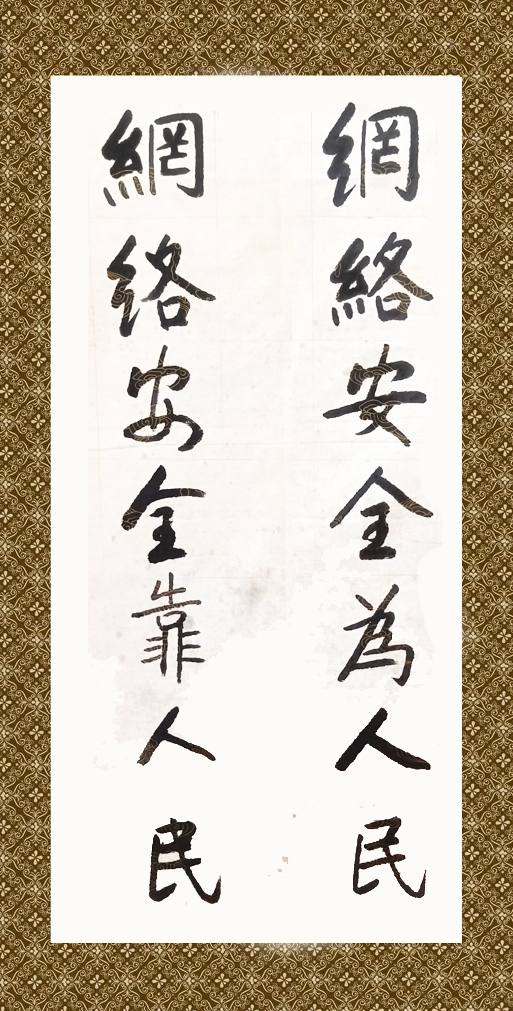 網絡安全為人民
網络安全靠人民